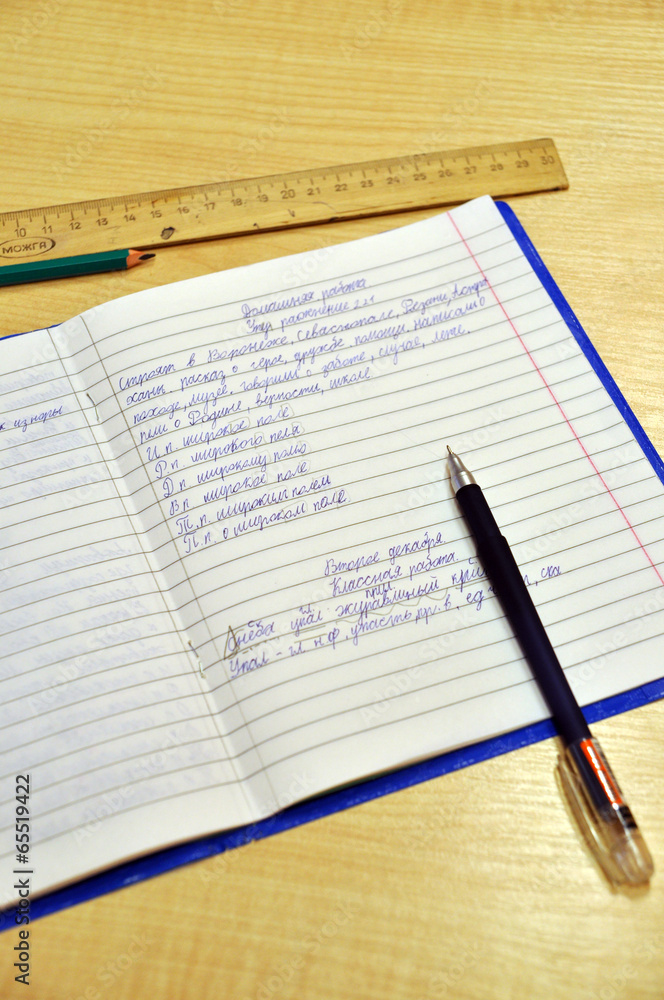 10 11 12 13 14 15 16 17 18 19 20 21 22 23 24 25 26 27 28 29 30
МОЖГА
к из норы
Домашняя работа
Упр ражнение 221
Строят в Воронеже, Севастополе, Резани, Астра
хани, расказ о горе, дружбе помощи. Написали о
походе, музее, говорили о заботе, случае, лете.
пели о Родине, верности, школе
И.п. широкое поле
Р.п. широкого поля
Д.п. широкому полю
В.п. широкое поле
Т.п. широким полем
П.п. о широком поле
Второе декабря.
Классная работа.
сущ. гл. прил.
С неба упал журавлиный
Упал - гл. н.ф. упасть, пр. в., ед.
Adobe Stock | #65519422